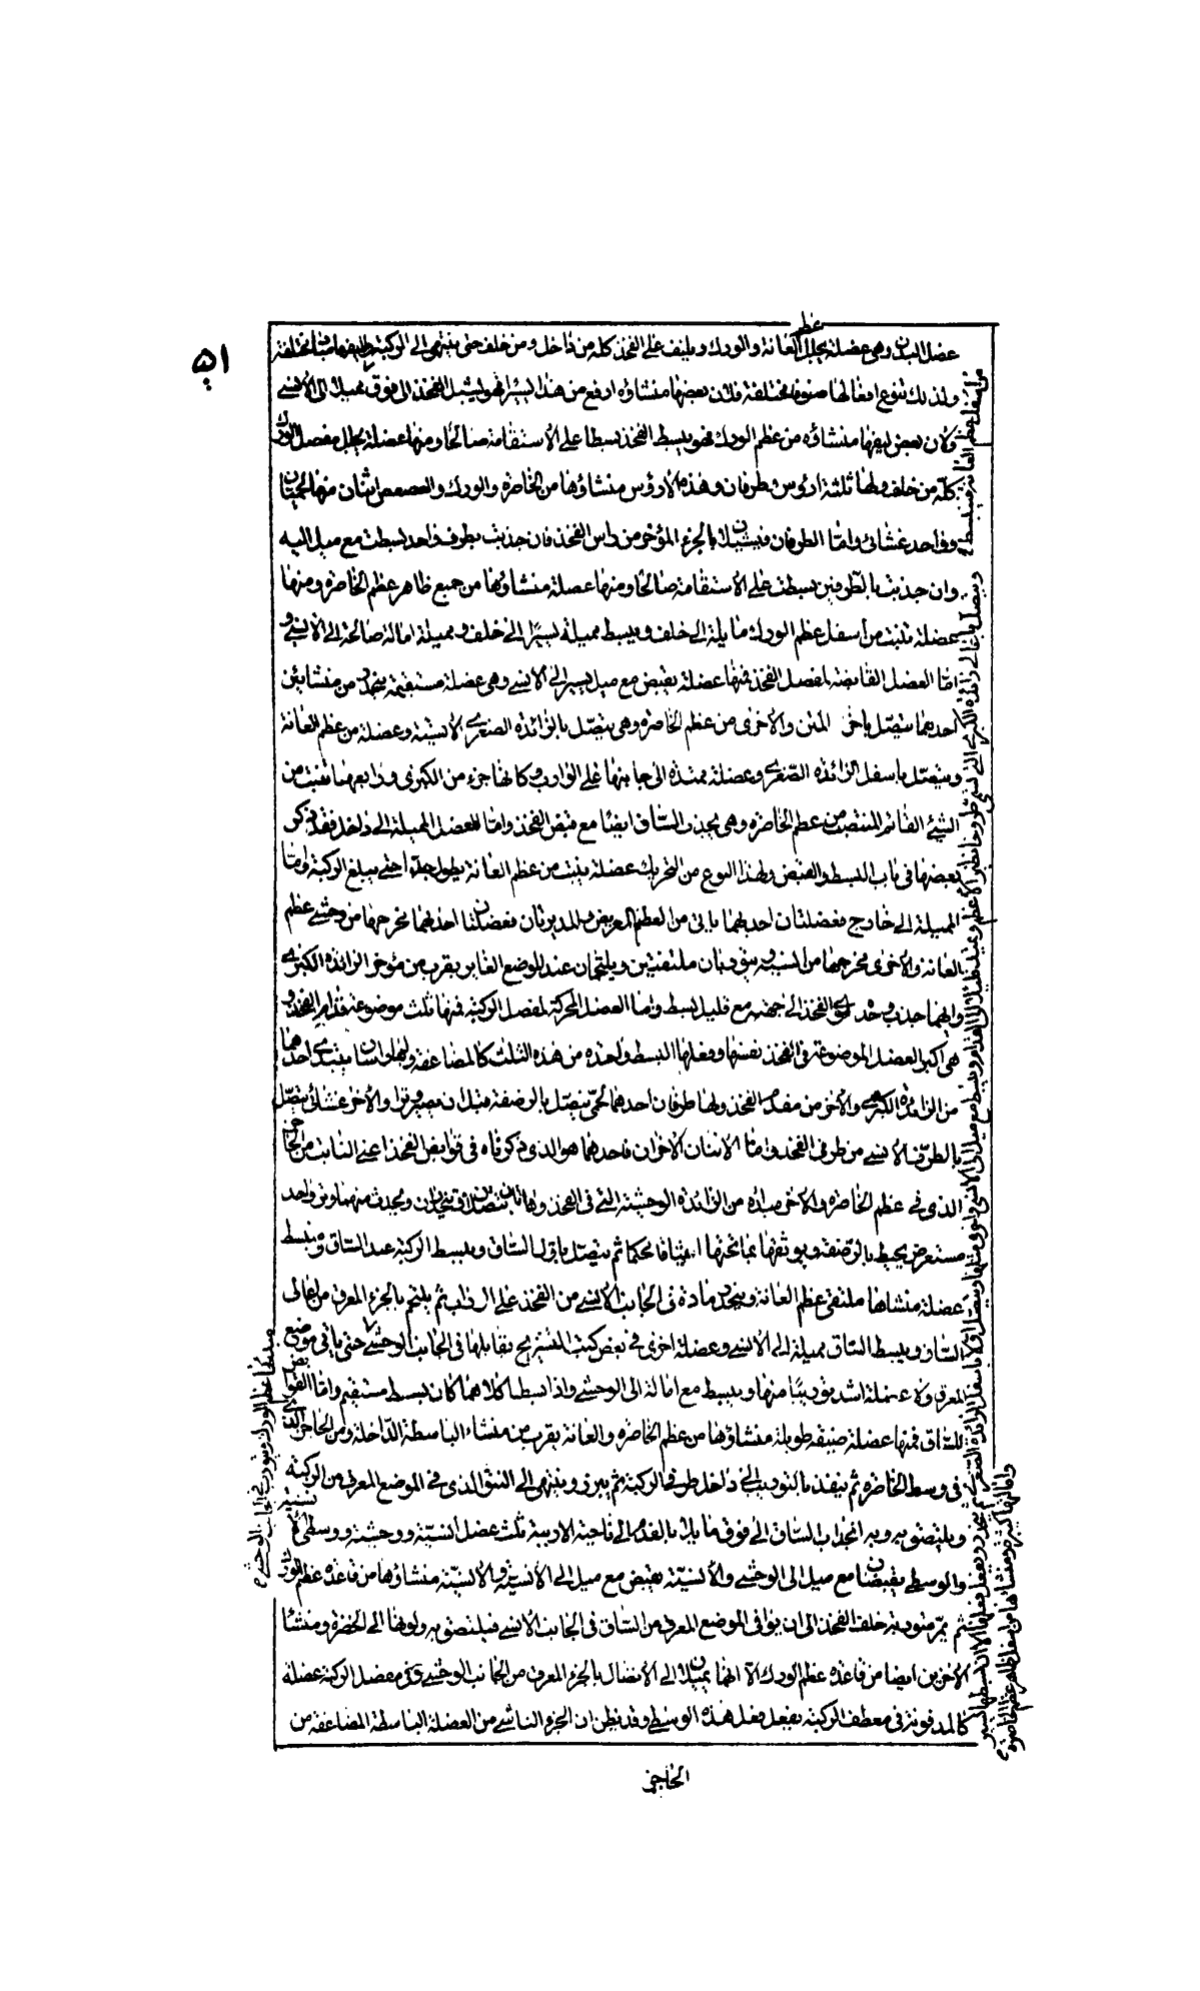 ۵۱
عظم
عضل البدن وهي عضلة يجلل العانة والورك ويلتف على الفخذ كله من داخل ومن خلف حتى ينتهي الى الركبة
ولذلك تنوع افعالها صنوفا مختلفة فلان بعضها منشاؤه ارفع من هذا يسيرا فهو يشيل الفخذ الى فوق مميلا الى الانسي
ولان بعض ليفها منشاؤه من عظم الورك فهو يبسط الفخذ بسطا على الاستقامة صالحا ومنها عضلة يجلل مفصل الورك
كله من خلف ولها ثلثة ارؤس وطرفان وهذه الارؤس منشاؤها من الخاصرة والورك والعصعص اثنان منها لحميان
وواحد غشائي واما الطرفان فيتصلان بالجزء المؤخر من راس الفخذ فان جذبت بطرف واحد بسطت مع ميل اليه
وان جذبت بالطرفين بسطت على الاستقامة صالحا ومنها عضلة منشاؤها من جميع ظاهر عظم الخاصرة ومنها
عضلة تنبت من اسفل عظم الورك مايلة الى خلف ويبسط مميلة يسيرا الى خلف ومميلة امالة صالحة الى الانسي و
اما العضل القابضة لمفصل الفخذ فمنها عضلة يقبض مع ميل يسير الى الانسي وهي عضلة مستقيمة ينحدر من منشائين
احدهما يتصل باخر المتن والاخرى من عظم الخاصرة وهي يتصل بالزائدة الصغرى الانسية وعضلة من عظم العانة
ويتصل باسفل الزائدة الصغرى وعضلة ممتدة الى جانبها على الوراب وكانها جزء من الكبرى ورابعها تنبت من
الشيء القائم المنتصب من عظم الخاصرة وهي يجذب الساق ايضا مع قبض الفخذ واما العضل المميلة الى داخل فقد ذكر
بعضها في باب البسط والقبض ولهذا النوع من التحريك عضلة ينبت من عظم العانة يطول جدا حتى يبلغ الركبة واما
المميلة الى خارج فعضلتان احديهما ياتي من العظم العريض والمديرتان فعضلتان احداهما مخرجها من وحشي عظم
العانة والاخرى مخرجها من انسيه ويتوربان ملتفتين ويلتحمان عند الموضع الغابر بقرب من مؤخر الزائدة الكبرى
وايهما جذب وحده لوى الفخذ الى جهته مع قليل بسط واما العضل المحركة لمفصل الركبة فمنها ثلث موضوعة قدام الفخذ و
هي اكبر العضل الموضوعة في الفخذ نفسها وفعلها البسط وواحدة من هذه الثلث كالمضاعفة ولها راسان يبتدئ احدهما
من الزائدة الكبرى والاخر من مقدم الفخذ ولها طرفان احدهما لحمي يتصل بالرضفة قبل ان يصير وترا والاخر غشائي يتصل
بالطرف الانسي من طرفي الفخذ واما الاثنان الاخران فاحدهما هو الذي ذكرناه في قوابض الفخذ اعني النابت من الحاجز
الذي في عظم الخاصرة والاخر مبداه من الزائدة الوحشية التي في الفخذ وهاتان يتصلان ويتحدان ويحدث منهما وتر واحد
مستعرض يحيط بالرضفة ويوثقها بما تحتها ايثاقا محكما ثم يتصل باول الساق ويبسط الركبة عند الساق ويبسط
عضلة منشاها ملتقى عظم العانة وينحدر مادة في الجانب الانسي من الفخذ على الوراب ثم يلتحم بالجزء المعرق من اعالى
الساق ويبسط الساق مميلة الى الانسي وعضلة اخرى في بعض كتب التشريح تقابلها في الجانب الوحشي حتى ياتي موضع
المعرق ولا عضلة اشد توريبا منها ويبسط مع امالة الى الوحشي واذا بسطا كلاهما كان بسط مستقيم واما القوابض
للساق فمنها عضلة ضيقة طويلة منشاؤها من عظم الخاصرة والعانة بقرب من منشاء الباسطة الداخلة ومن الحاجز الذي
في وسط الخاصرة ثم ينفذ بالتوريب الى داخل طرفي الركبة ثم يبرز وينتهي الى النتو الذي في الموضع المعرق من الركبة
ويلتصق به وبه انجذاب الساق الى فوق مايلا بالقدم الى ناحية الاربية ثلث عضل انسية ووحشية ووسطى
والوسطى يقبضان مع ميل الى الوحشي والانسية يقبض مع ميل الى الانسية والانسية منشاؤها من قاعدة عظم الورك
ثم يمر متوربة خلف الفخذ الى ان يوافى الموضع المعرق من الساق في الجانب الانسي فيلتصق به ولونها الى الخضرة ومنشا
الاخرين ايضا من قاعدة عظم الورك الا انهما يميلان الى الاتصال بالجزء المعرق من الجانب الوحشي وفى مفصل الركبة عضلة
كالمدفونة في معطف الركبة يفعل فعل هذه الوسطى وقد يظن ان الجزء الناشي من العضلة الباسطة المضاعفة من
الحاجز